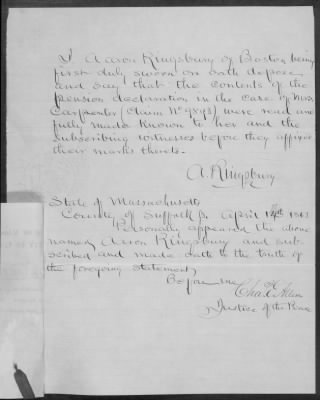 I Aaron Kingsbury of Boston being
first duly sworn on oath depose
and say that the contents of the
pension declaration in the case of Mrs
Carpenter (Claim No were read and
fully made known to her and the
subscribing witnesses before they affixed
their marks thereto.
A. Kingsbury
State of Massachusetts
County of Suffolk ss. April
Personally appeared the above
named Aaron Kingsbury and sub-
scribed and made oath to the truth of
the foregoing statement,
Before me
Justice of the Peace